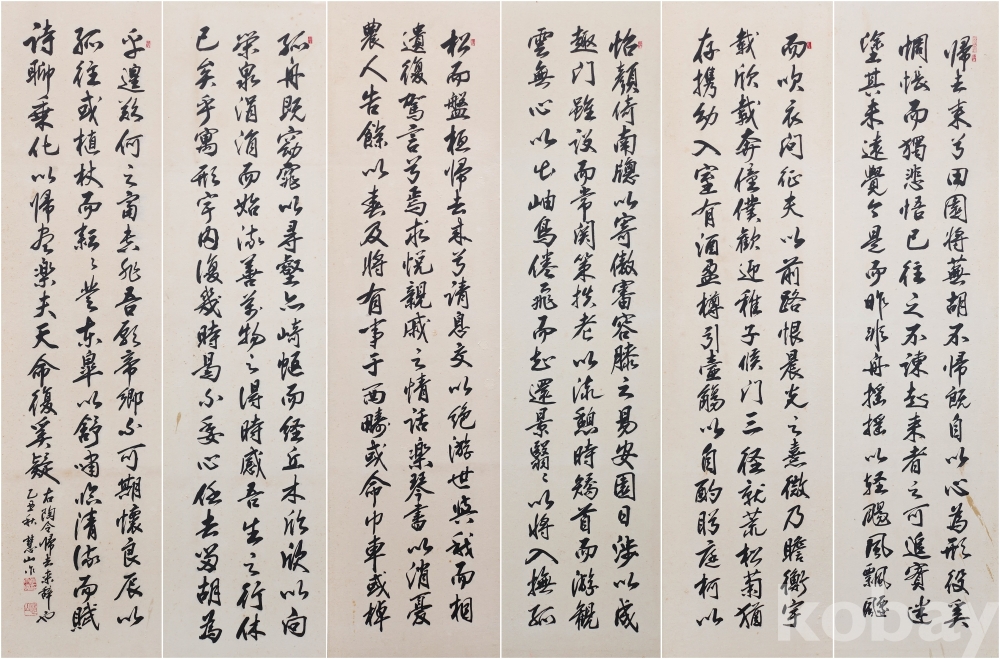 歸去來兮田園將蕪胡不歸既自以心為形役奚
惆悵而獨悲悟已往之不諫知來者之可追實迷
塗其未遠覺今是而昨非舟搖搖以輕颺風飄飄
而吹衣问征夫以前路恨晨光之熹微乃瞻衡宇
載欣載奔僮僕歡迎稚子候门三径就荒松菊猶
存携幼入室有酒盈樽引壺觴以自酌眄庭柯以
怡顏倚南牕以寄傲審容膝之易安園日涉以成
趣门雖設而常関策扶老以流憩時矯首而游觀
雲無心以出岫鳥倦飛而知還景翳々以將入撫孤
松而盤桓歸去來兮請息交以絕游世與我而相
遺復駕言兮焉求悅親戚之情話樂琴書以消憂
農人告餘以春及將有事于西疇或命巾車或棹
孤舟既窈窕以尋壑亦崎嶇而経丘木欣欣以向
榮泉涓涓而始流善萬物之得時感吾生之行休
已矣乎寓形宇内復幾時曷不委心任去留胡為
乎遑欲何之富貴非吾願帝鄉不可期懷良辰以
孤往或植杖而耘々登東皐以舒嘯临清流而賦
詩聊乗化以歸盡樂夫天命復奚疑
右陶令歸去来辞也
乙丑秋 慧山作
kobay